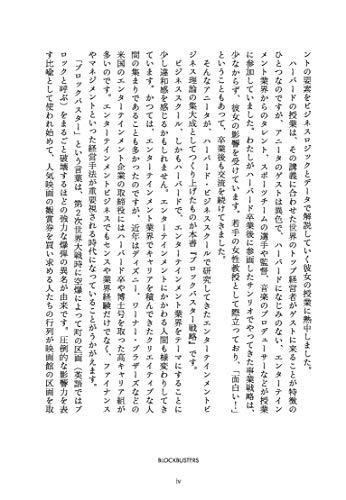 ントの要素をビジネスロジックとデータで解説していく彼女の授業に熱中しました。
　ハーバードの授業は、その講義に合わせた世界のトップ経営者がゲストに来ることが特徴の
ひとつなのですが、アニータのゲストは異色で、ハーバードになじみのない、エンターテイン
メント業界からのタレント、スポーツチームの選手や監督、音楽のプロデューサーなどが授業
に参加していました。わたしがハーバード卒業後に参画したサンリオでやってきた事業戦略は、
少なからず、彼女の影響を受けています。若手の女性教授として際立っており、「面白い！」
ということもあって、卒業後も交流を続けてきました。
　そんなアニータが、ハーバード・ビジネススクールで研究してきたエンターテインメントビ
ジネス理論の集大成としてつくり上げたものが本書『ブロックバスター戦略』です。
　ビジネススクール、しかもハーバードで、エンターテインメント業界をテーマにすることに
少し違和感を感じるかもしれません。エンターテインメントにかかわる人間も様変わりしてき
ています。かつては、エンターテインメント業界でキャリアを積んできたクリエイティブな人
間の集まりであることも多かったのですが、近年はディズニー、ワーナー・ブラザーズなどの
米国のエンターテインメント企業の取締役にはハーバード卒や博士号を取った高キャリア組が
多いのです。エンターテインメントビジネスでもセンスや業界経験だけでなく、ファイナンス
やマネジメントといった経営手法が重要視される時代になっていることがうかがえます。
　「ブロックバスター」という言葉は、第2次世界大戦時に空爆によって町の区画（英語ではブ
ロックと呼ぶ）をまるごと破壊するほどの強力な爆弾の異名が由来です。圧倒的な影響力を表
す比喩として使われ始めて、人気映画の観賞券を買い求める人たちの行列が映画館の区画を取
BLOCKBUSTERS
iv